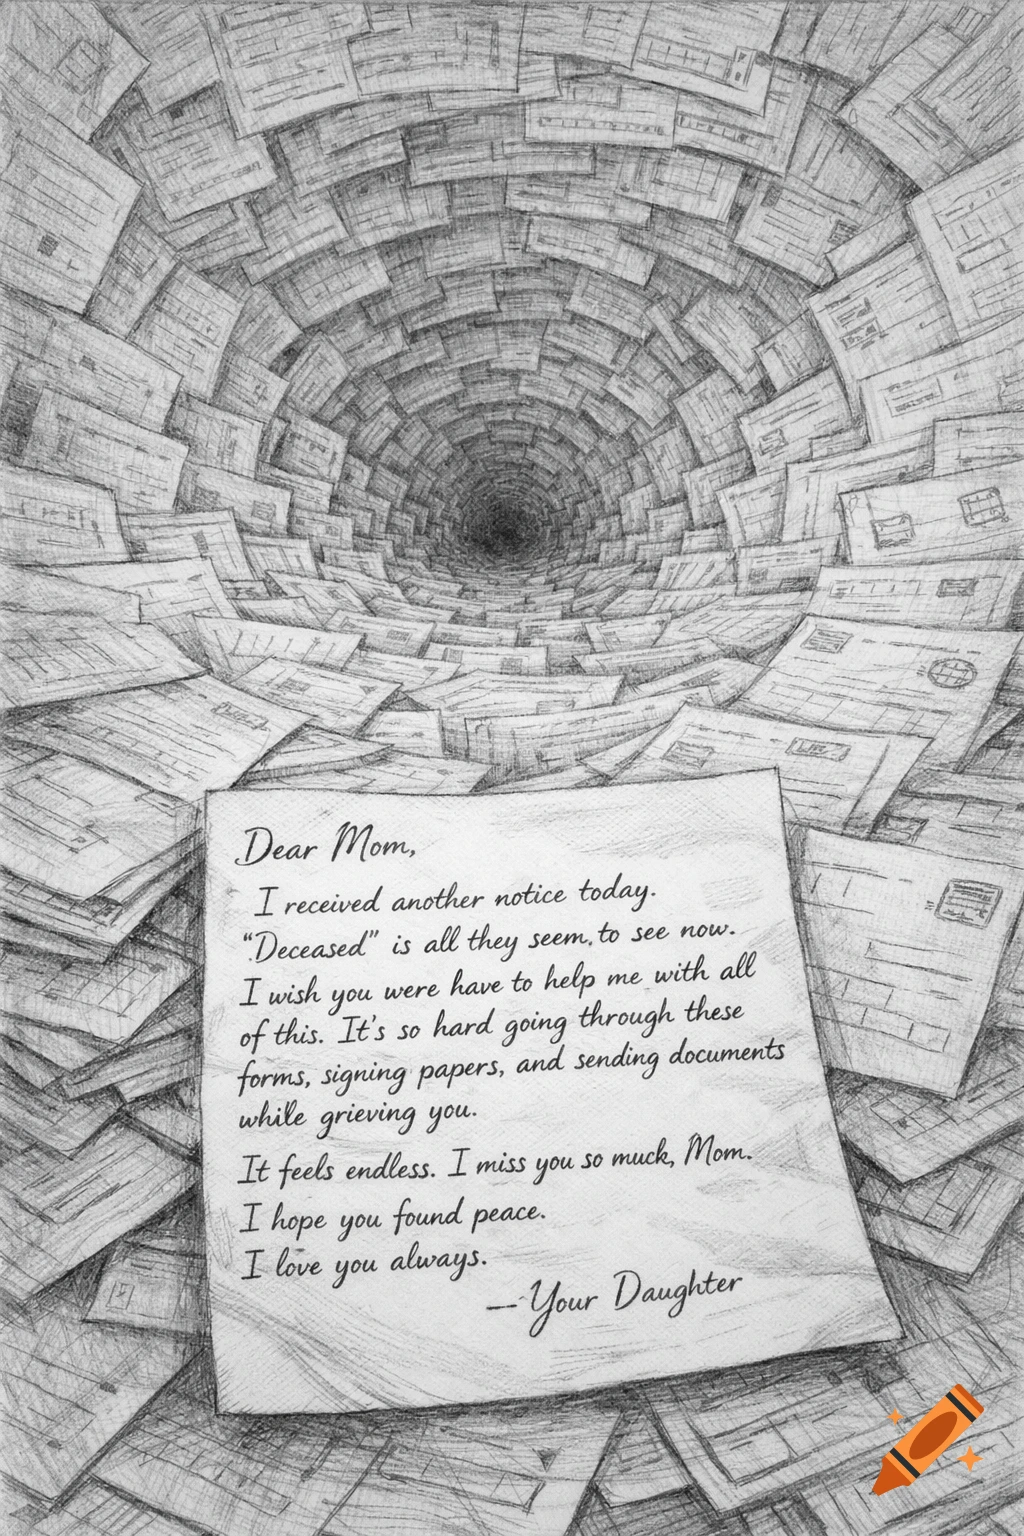 Dear Mom,
I received another notice today.
“Deceased” is all they seem to see now.
I wish you were have to help me with all
of this. It's so hard going through these
forms, signing papers, and sending documents
while grieving you.
It feels endless. I miss you so much, Mom.
I hope you found peace.
I love you always.
—Your Daughter